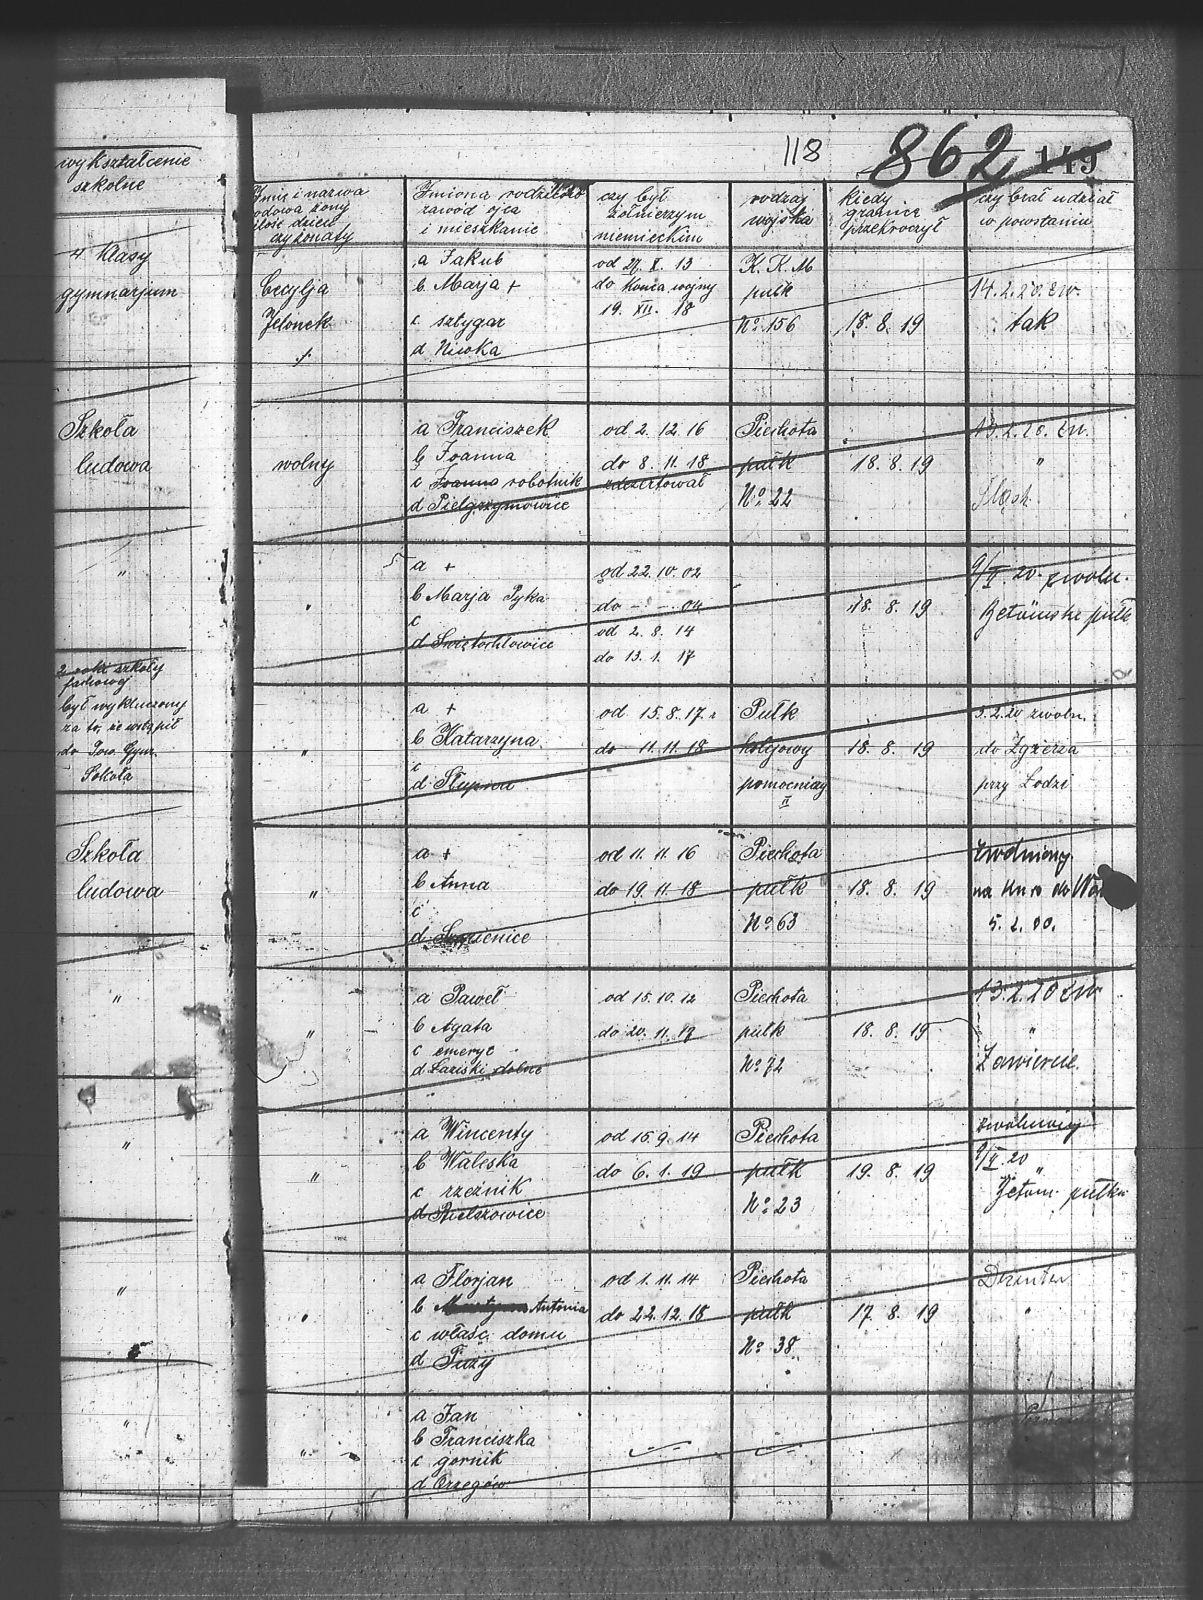 118
862
149
wykształcenie
szkolne
Imię i nazwa
rodowa żony
ilość dzieci
czy żonaty
Imiona rodziców
zawód ojca
i mieszkanie
czy był
żołnierzym
niemieckim
rodzaj
wojska
kiedy
granicę
przekroczył
czy brał udział
w powstaniu
4 klasy
gymnazjum
Cecylja
Jelonek
a Jakub
b Marja +
c sztygar
d Niwka
od 27. X. 13
do końca wojny
19. XII. 18
K. K. M
pułk
No. 156
18. 8. 19
14. 2. 20. zw.
tak
Szkoła
ludowa
wolny
a Franciszek
b Joanna
c Joanna robotnik
d Pielgrzymowice
od 2. 12. 16
do 8. 11. 18
zdezertował
Piechota
pułk
No. 22
18. 8. 19
13. 2. 20. zw.
"
"
"
a +
b Marja Pyka
c
d Świętochłowice
od 22. 10. 02
do - - 04
od 2. 8. 14
do 13. 1. 17
18. 8. 19
9/II. 20. zwoln.
Betōńske pułk
2 roki szkoły
fachowej
był wykluczony
za to, że wstąpił
do Pow. Gym.
Sokoła
"
a +
b Katarzyna
c
d Słupna
od 15. 8. 17.
do 11. 11. 18
Pułk
kolejowy
pomocniczy
II
18. 8. 19
5. 2. 20 zwoln.
do Zgierza
przy Łodzi
Szkoła
ludowa
"
a +
b Anna
c
d
od 11. 11. 16
do 19. 11. 18
Piechota
pułk
No. 63
18. 8. 19
zwolniony
na kurs do
5. 2. 20.
"
"
a Paweł
b Agata
c emeryt
d Łaziski dolne
od 15. 10. 12
do 20. 11. 17
Piechota
pułk
No. 72
18. 8. 19
13. 2. 20 zw.
"
Zawiercie.
"
"
a Wincenty
b Waleska
c rzeźnik
d Bielszowice
od 15. 9. 14
do 6. 1. 19
Piechota
pułk
No. 23
19. 8. 19
zwolniony
9/II. 20
"
Betom. pułku
"
"
a Florjan
b Antonia
c właśc. domu
d
od 1. 11. 14
do 22. 12. 18
Piechota
pułk
No. 38
17. 8. 19
"
"
"
a Jan
b Franciszka
c górnik
d Orzegów